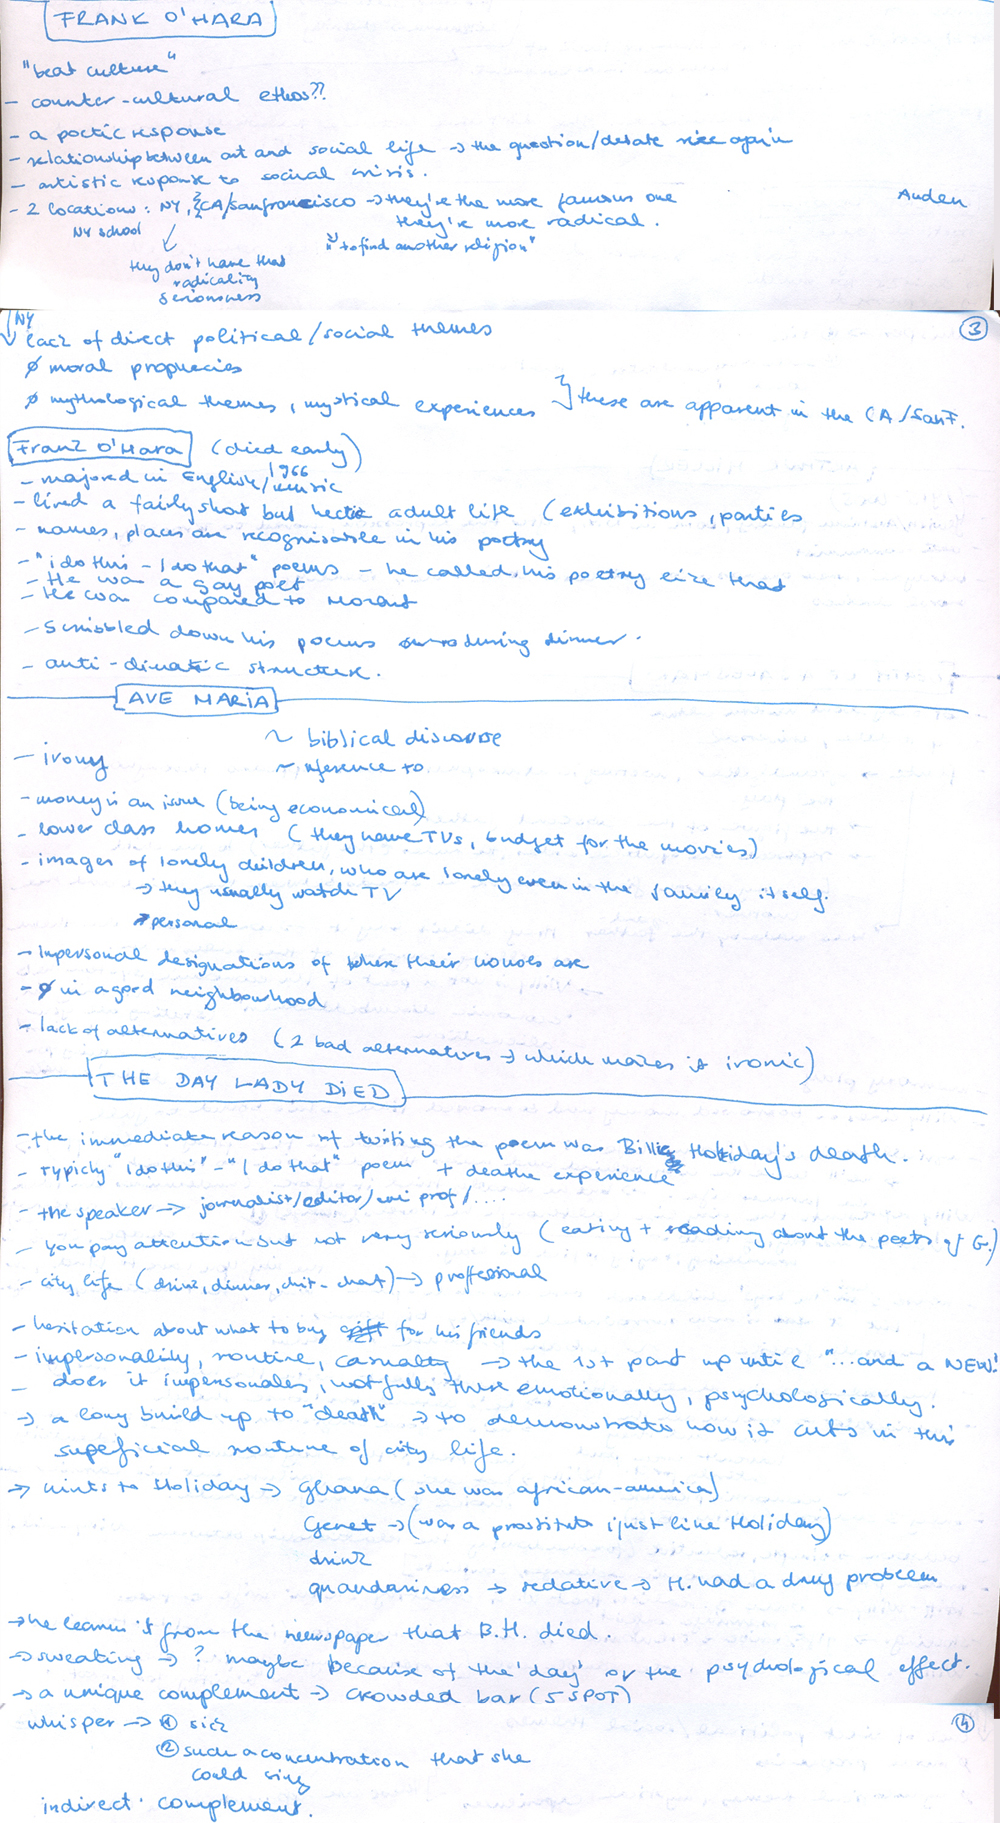 FRANK O'HARA
"beat culture"
- counter-cultural ethos??
- a poetic response
- relationship between art and social life → the question/debate rise again
- artistic response to social crisis.
- 2 locations: NY, CA/sanfrancisco → they're the more famous one
Auden
NY school
they're more radical.
"to find another religion"
they don't have that
radicality
seriousness
NY
3
lack of direct political/social themes
ø moral prophecies
ø mythological themes, mystical experiences } these are apparent in the CA/SanF.
Frank O'Hara (died early)
1966
- majored in English/music
- lived a fairly short but hectic adult life (exhibitions, parties
- names, places are recognisable in his poetry
- "i do this - I do that" poems - he called his poetry like that
- He was a gay poet
- He was compared to Mozart
- scribbled down his poems during dinner.
- anti-climatic structure.
AVE MARIA
~ biblical discourse
- irony
~ reference to
- money is an issue (being economical)
- lower class homes (they have TVs, budget for the movies)
- images of lonely children, who are lonely even in the family itself.
→ they usually watch TV
↗ personal
- Impersonal designations of where their houses are
- ø in a good neighbourhood
- lack of alternatives (2 bad alternatives → which makes it ironic)
THE DAY LADY DIED
- the immediate reason of writing the poem was Billie Holiday's death.
- typicly "I do this" - "I do that" poem + deathe experience
- the speaker → journalist/editor/uni prof/....
- you pay attention but not very seriously (eating + reading about the poets of G.)
- city life (drink, dinner, chit-chat) → proffessional
- hesitation about what to buy gift for his friends
- impersonality, routine, casualty → the 1st part up until "...and a NEW!
- does it impersonales, not fully there emotionally, psychologically.
→ a long build up to "death" → to demonstrate how it cuts in this
supeficial routine of city life.
→ hints to Holiday → ghana (she was african-america)
Genet → (was a prostitute, just like Holiday)
drink
quandariness → sedative → H. had a drug problem
→ he learns it from the newspaper that B.H. died.
→ sweating → ? maybe because of the 'day' or the psychological effect.
→ a unique complement → crowded bar (5 SPOT)
4
whisper → ① sick
② such a concentration that she
could sing
indirect complement.